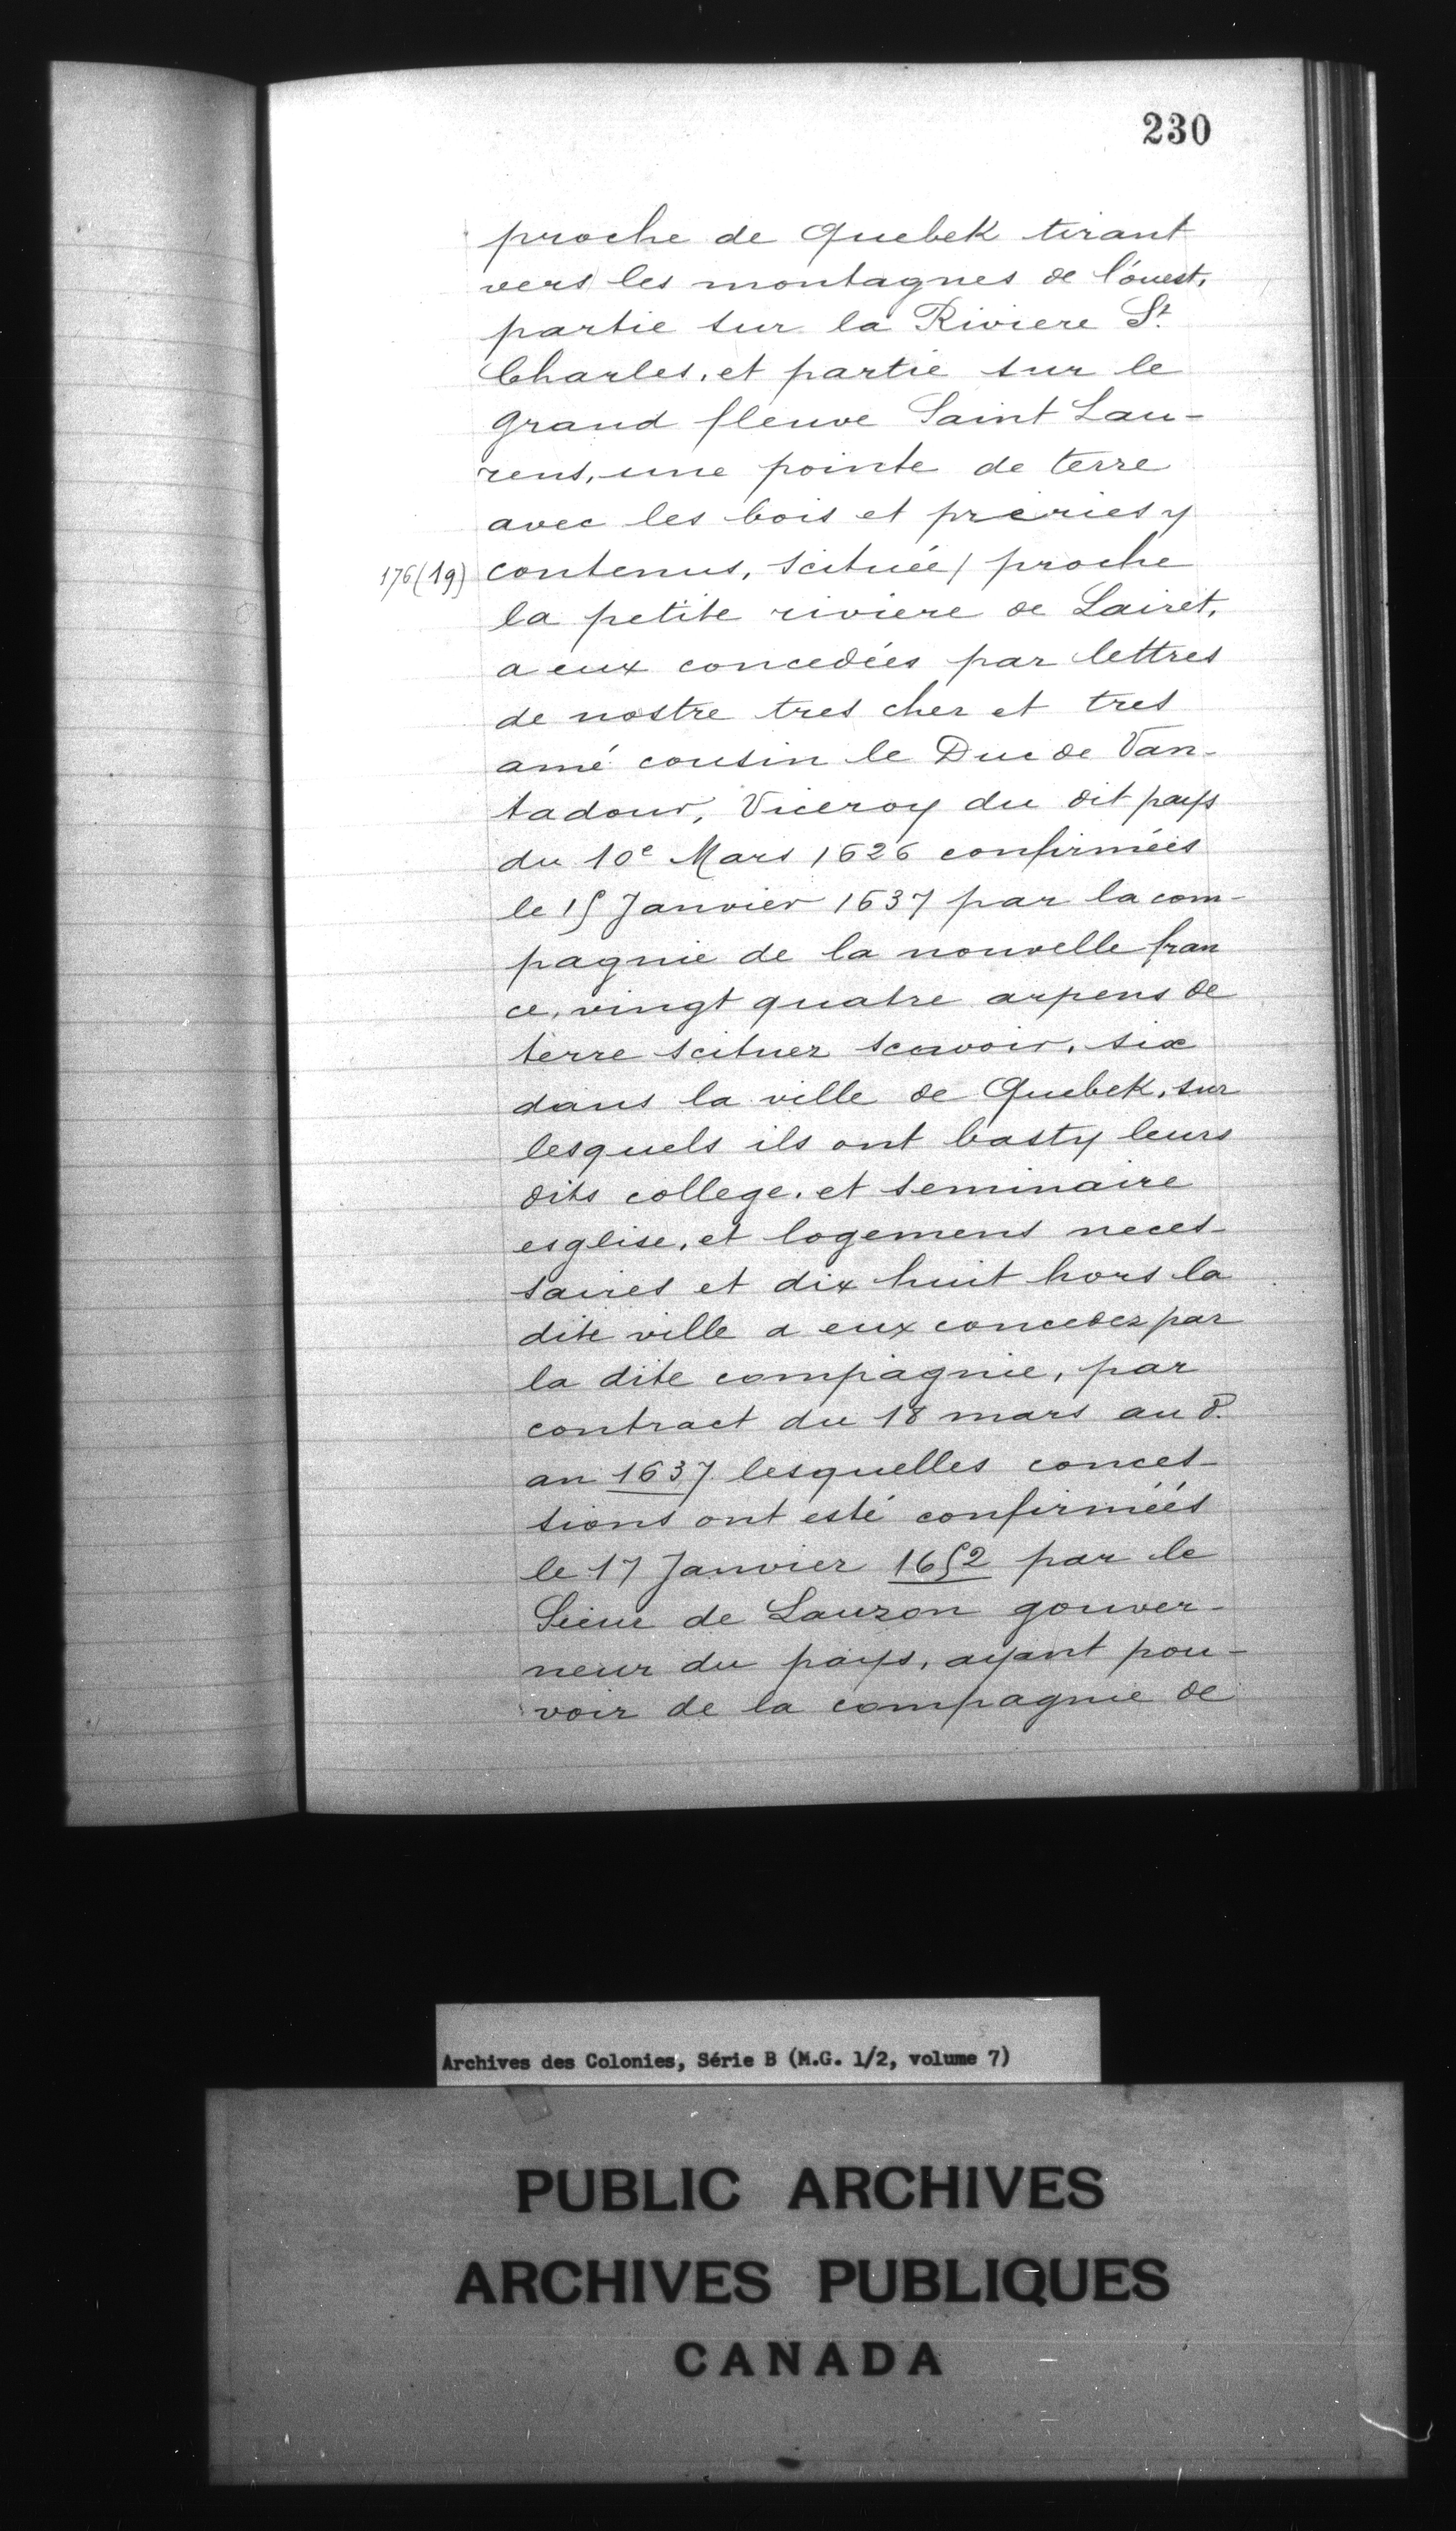 230
proche de Quebek tirant
vers les montagnes de l'ouest,
partie sur la Riviere St.
Charles, et partie sur le
grand fleuve Saint Lau-
rens, une pointe de terre
avec les bois et preries y
176(19) contenus, scituée/ proche
la petite riviere de Lairet,
a eux concedées par lettres
de nostre tres cher et tres
amé cousin le Duc de Van-
tadour, Viceroy du dit pays
du 10e Mars 1626 confirmées
le 15 Janvier 1637 par la com-
pagnie de la nouvelle fran
ce, vingt quatre arpens de
terre scituez scavoir, six
dans la ville de Quebek, sur
lesquels ils ont basty leurs
dits college, et seminaire
esglise, et logemens neces-
saires et dix huit hors la
dite ville a eux concedez par
la dite compagnie, par
contract du 18 mars au d.
an 1637 lesquelles conces-
sions ont esté confirméés
le 17 Janvier 1652 par le
Sieur de Lauzon gouver-
neur du pays, ayant pou-
voir de la compagnie de
Archives des Colonies, Série B (M.G. 1/2, volume 7)
PUBLIC ARCHIVES
ARCHIVES PUBLIQUES
CANADA